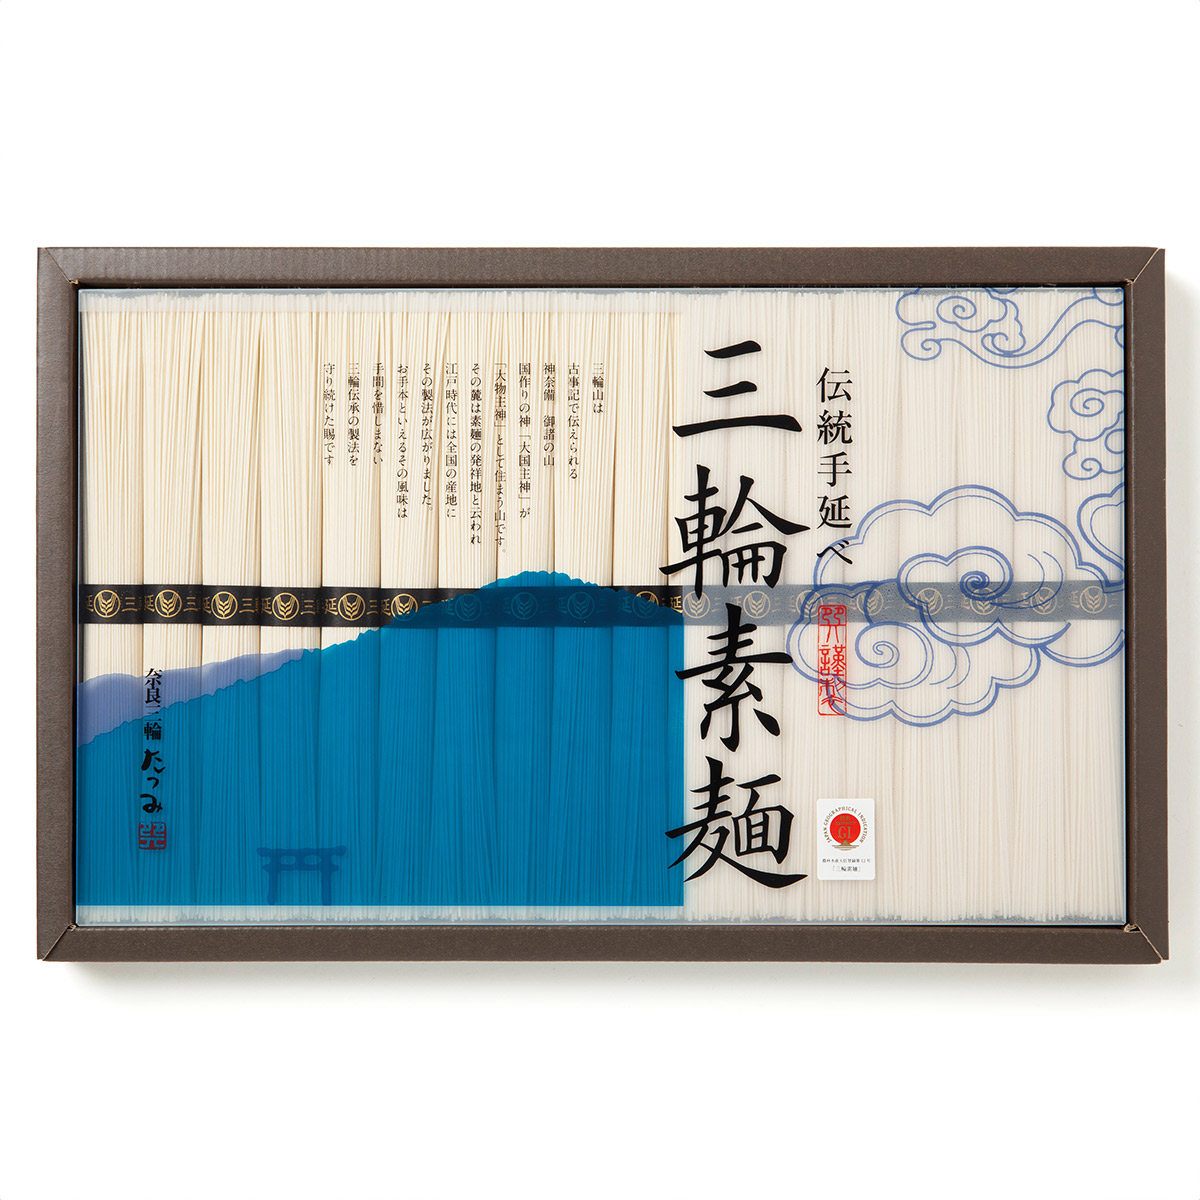 伝統手延べ
三輪素麺
謹製
三輪山は
古事記で伝えられる
神奈備 御諸の山
国作りの神「大国主神」が
「大物主神」として住まう山です。
その麓は素麺の発祥地と云われ
江戸時代には全国の産地に
その製法が広がりました。
お手本といえるその風味は
手間を惜しまない
三輪伝承の製法を
守り続けた賜です
奈良三輪
たつみ
JAPAN GEOGRAPHICAL INDICATION
GI
農林水産大臣登録第12号
「三輪素麺」